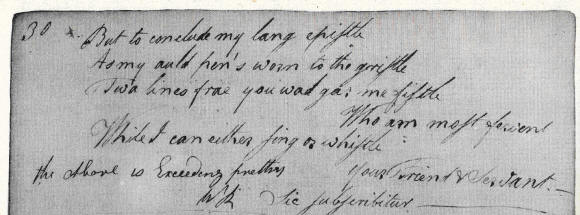 30 x. But to conclude my lang epistle
As my auld pen's worn to the gristle
Twa lines frae you wad gar me fissle
Who am most fervent
While I can either sing or whissle
the above is Exceeding pretty your Friend & Servant.
Sic subscribitur